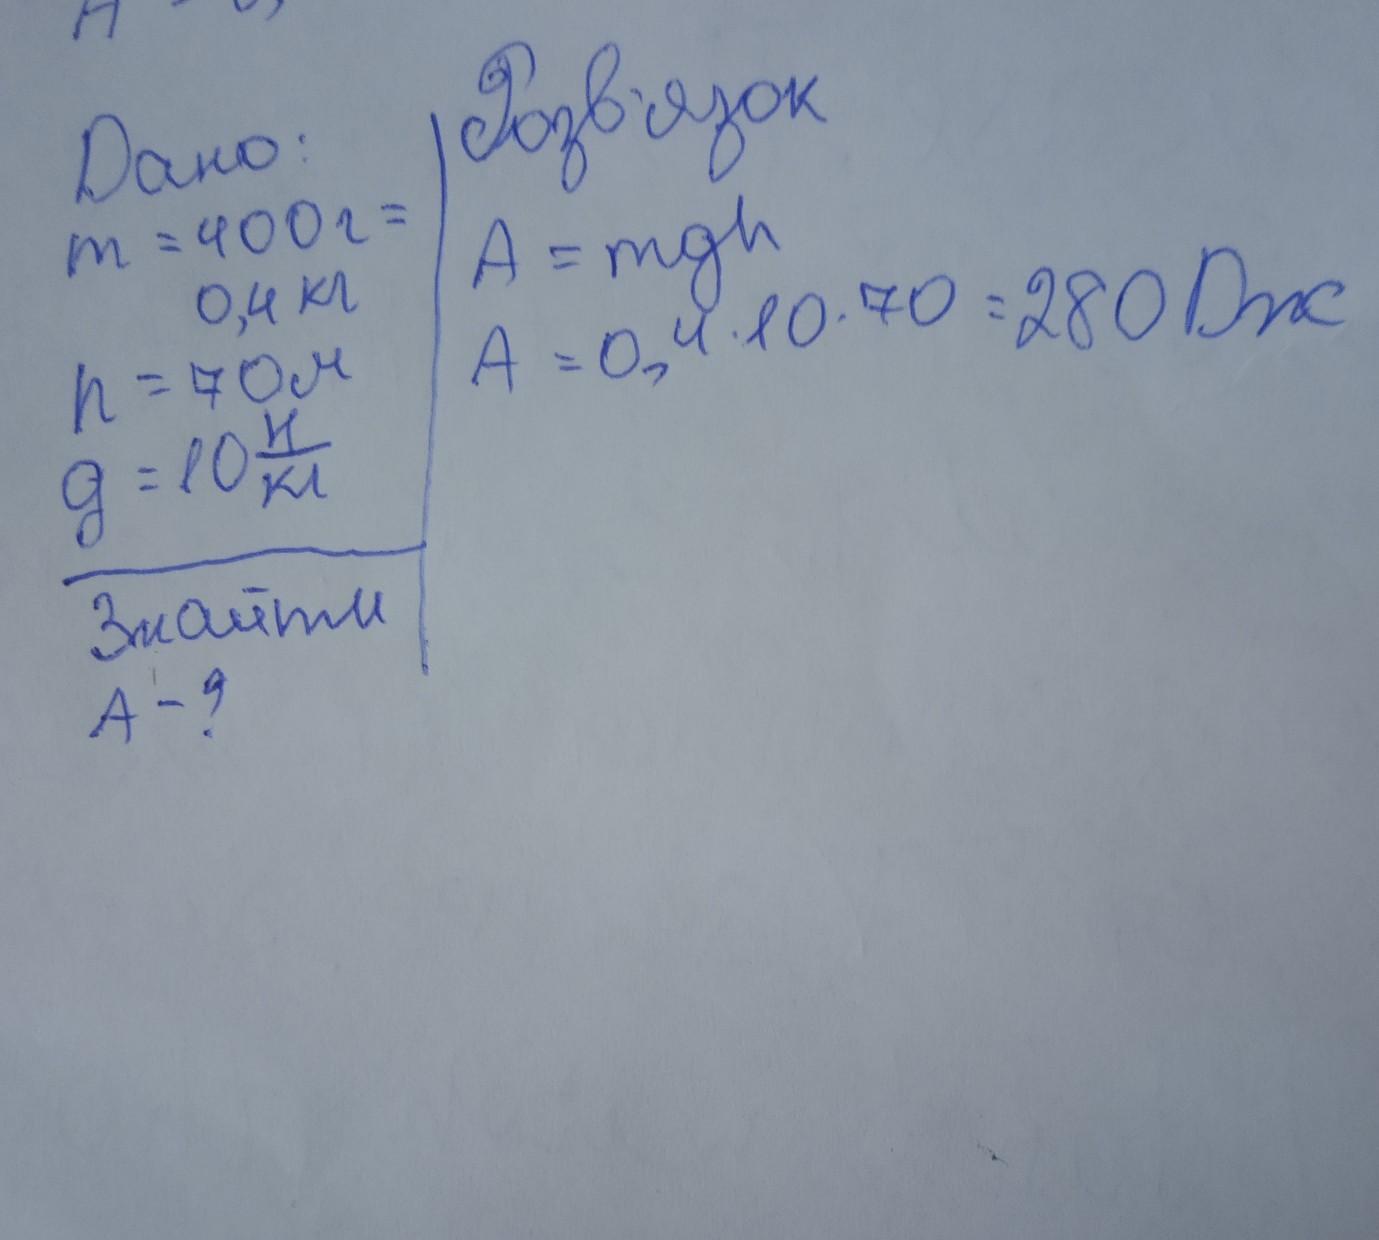 Дано:
m = 400 г =
0,4 кг
h = 70 м
g = 10 Н/кг
Знайти
A - ?
Розв'язок
A = mgh
A = 0,4 · 10 · 70 = 280 Дж